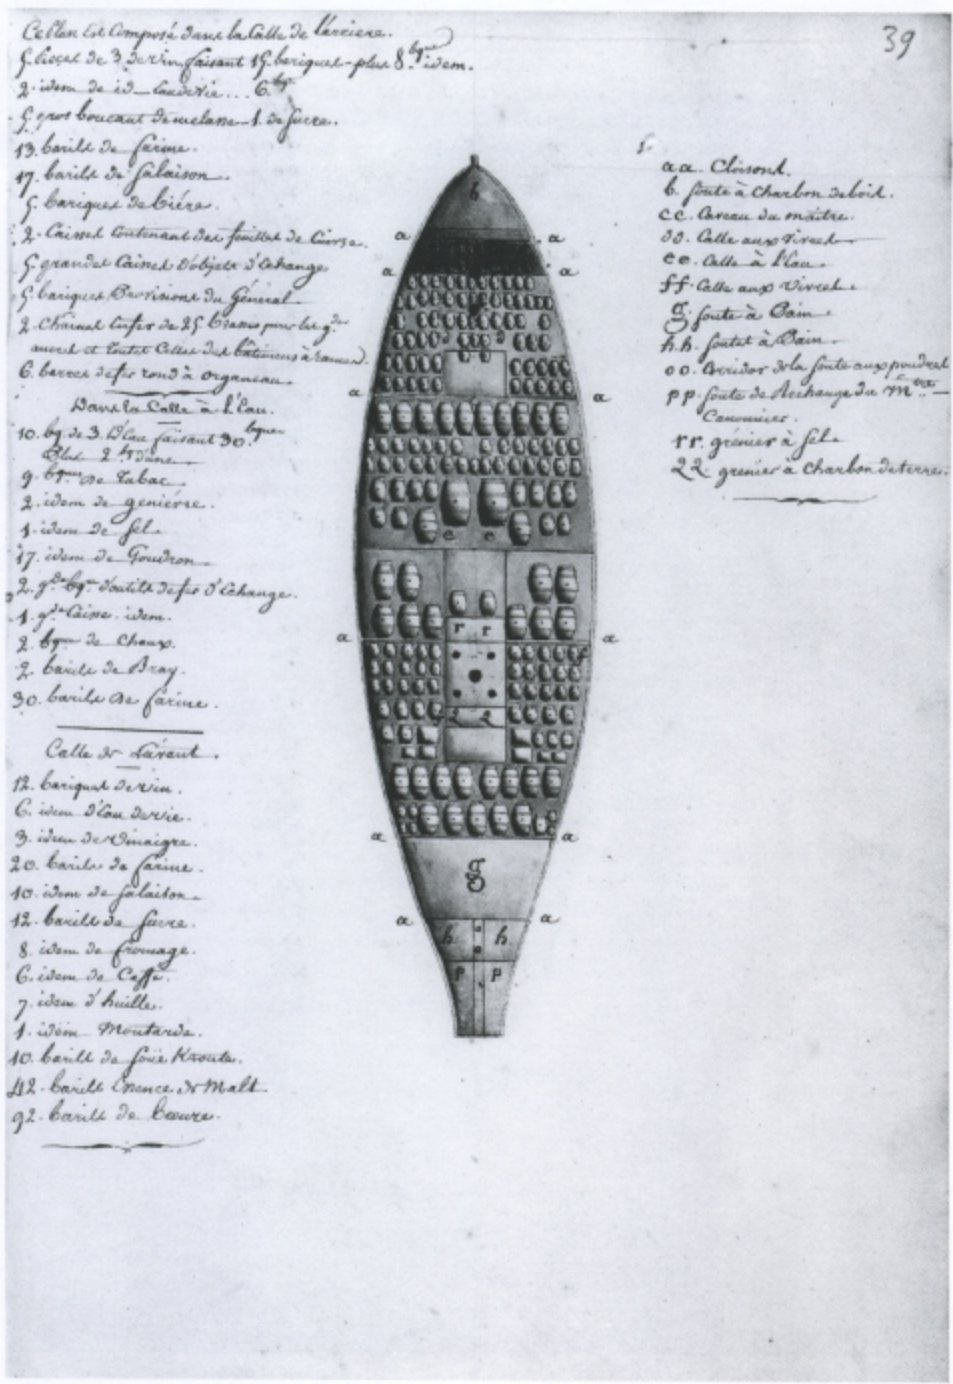 39
Ce Plan Est Composé dans la Calle de l'arriere.
5. pieces de 3. de vin faisant 15. bariques - plus 8. bques idem.
2. idem de id - Eaudevie ... 6. bq.
5. gros boucaut de melasse - 1. de sucre.
13. barils de farine.
17. barils de Salaison.
5. bariques de biére.
2. Caisses Contenant des feuilles de Cuivre.
5. grandes Caisses d'objets d'Echange
5. bariques Provisions du Général.
2. Chaines Enfer de 25 brasses pour les gdes
ancres et toutes Celles des bâtimens à rames.
6. barres de fer rond à organeau.
Dans la Calle à l'Eau.
10. bq. de 3. d'Eau faisant 30. bques
Plus 2. d'une
9. bques de Tabac.
2. idem de geniévre.
1. idem de Sel.
17. idem de Goudron
2. gdes bques d'outils de fer d'Echange.
1. gde Caisse idem.
2. bques de Chaux.
2. barils de Bray.
30. barils de farine.
Calle de L'avant.
12. bariques de vin.
6. idem d'Eau de vie.
3. idem de Vinaigre.
20. barils de farine.
10. idem de Salaison.
12. barils de Sucre.
8. idem de fromage.
6. idem de Caffé.
7. idem d'huille.
1. idem Moutarde.
10. barils de Soüe Kroute.
42. barils Essence de Malt
92. barils de beurre.
aa. Cloisons.
b. soute à Charbon de bois.
cc. Caveau du maitre.
dd. Calle aux vivres
ee. Calle à l'Eau.
ff. Calle aux vivres.
g. soute à Pain.
h.h. soutes à Pain.
oo. Corridor de la soute aux poudres
pp. soute de Rechange du Mtre
Canonnier.
rr. grenier à Sel.
22. grenier à Charbon de terre.
h
a a
a a
a a
e e
r r
a a
f
2 2
a a
g
a a
h h
p p